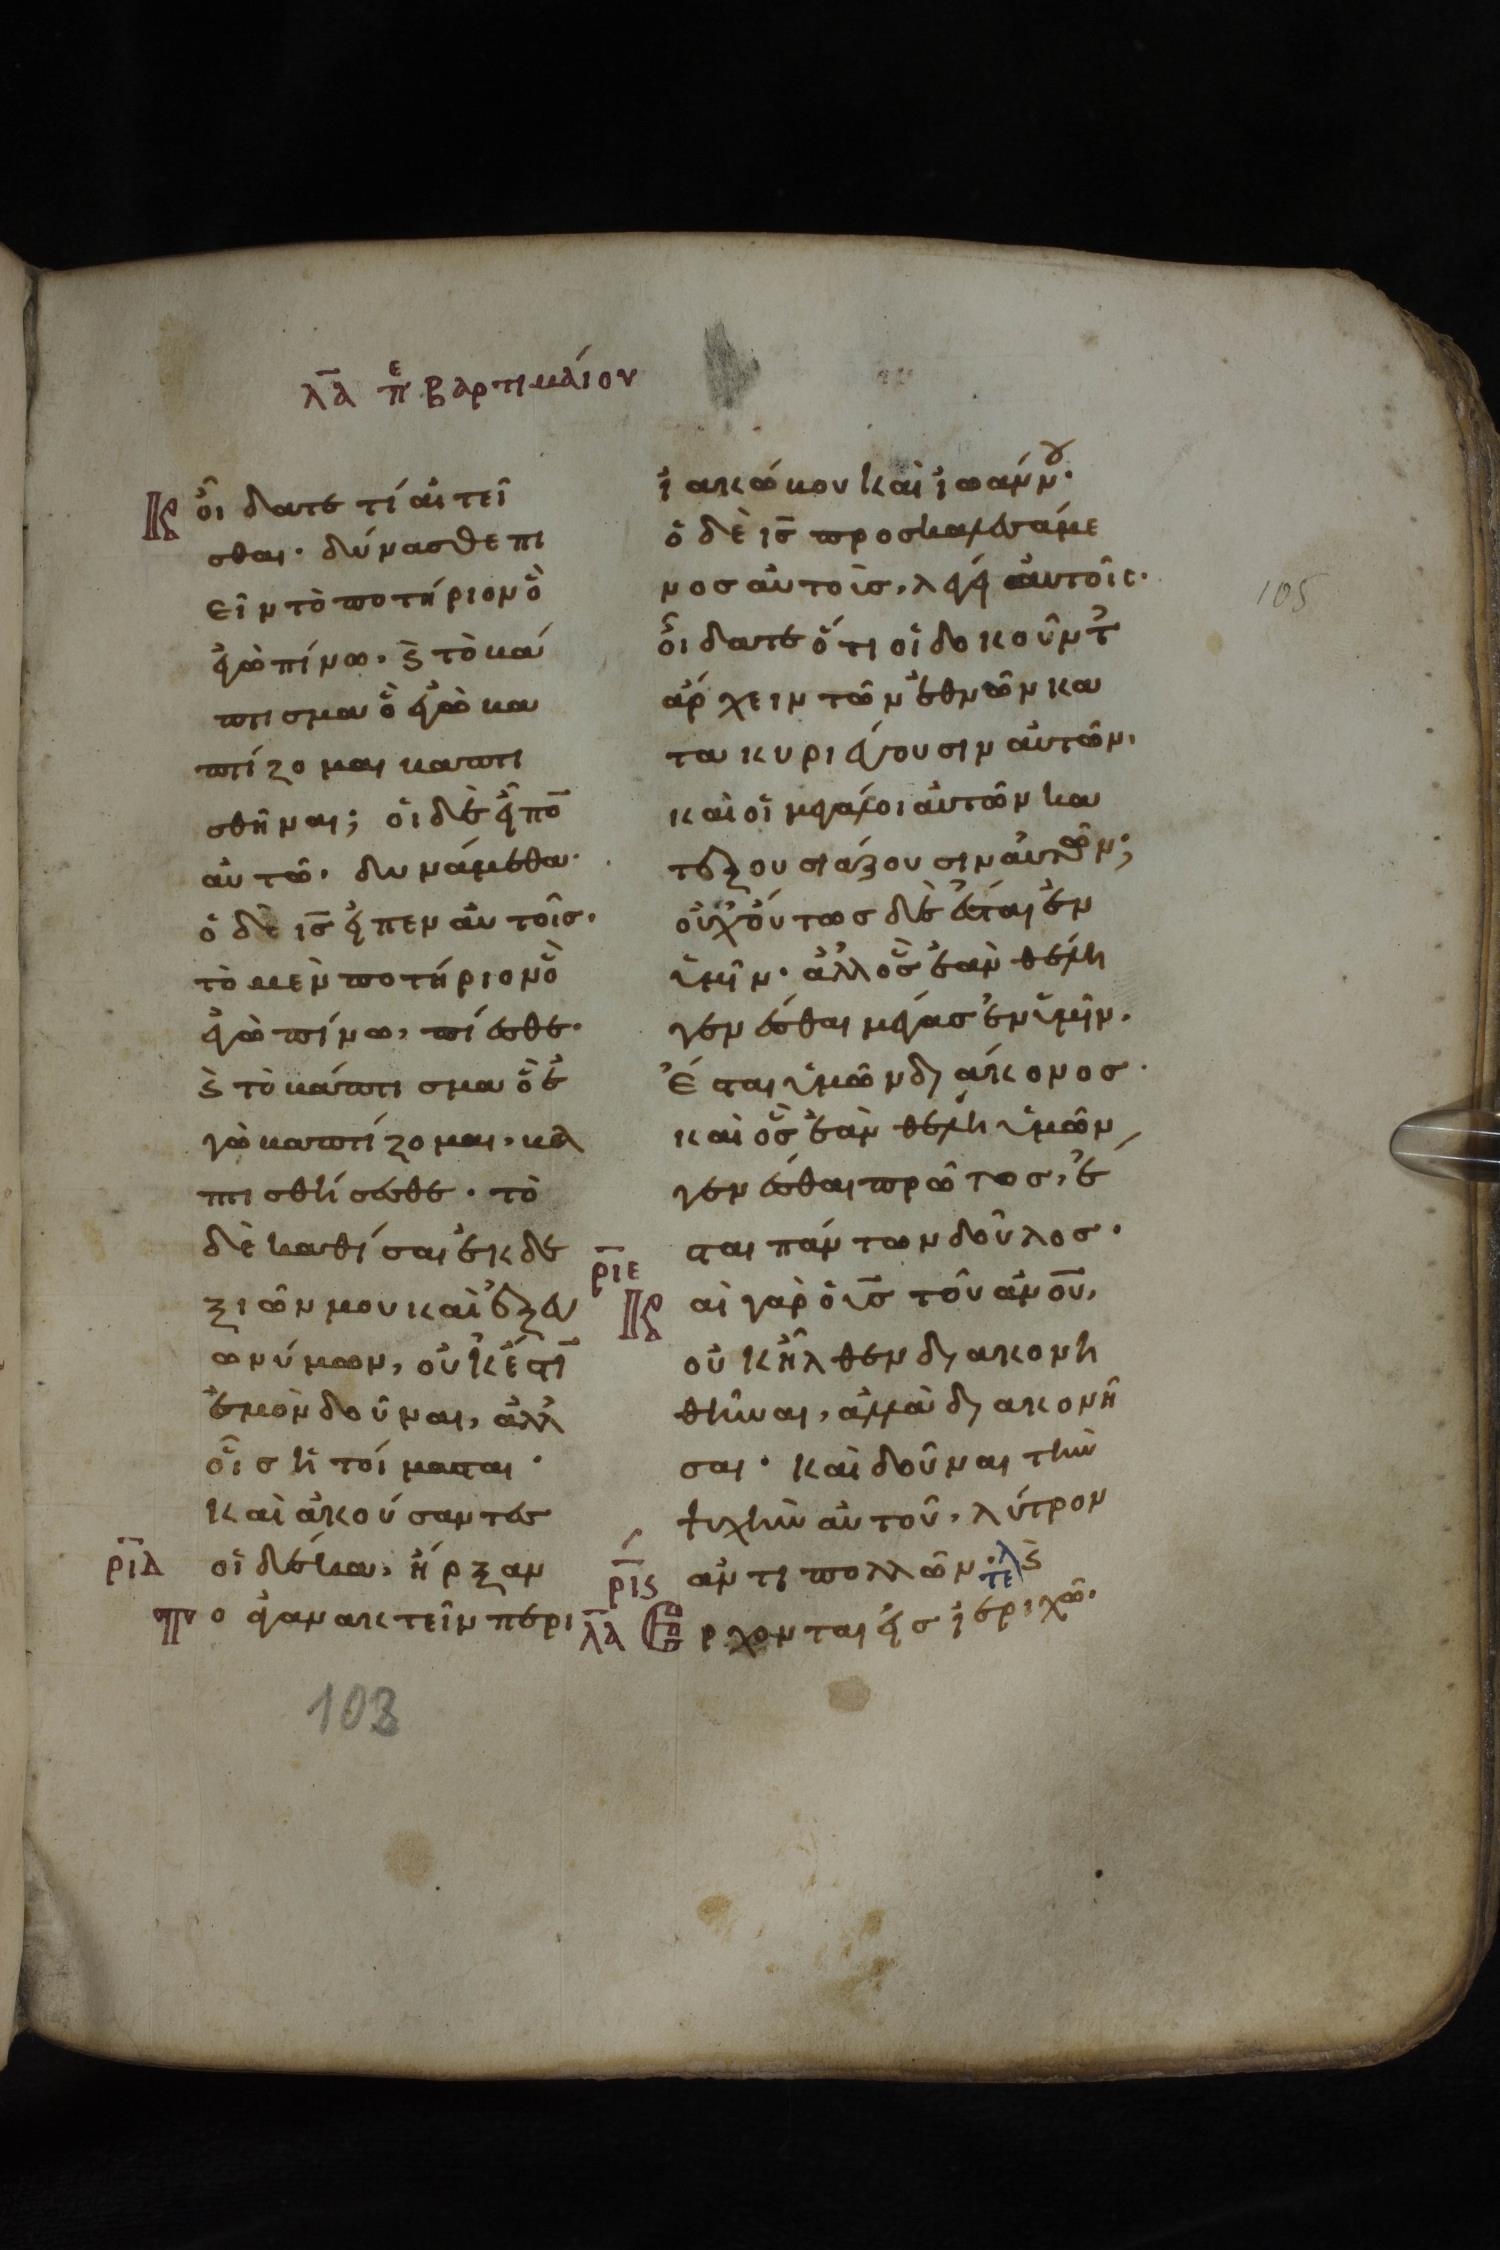 λ̅α̅ πε βαρτιμαίου
Κ οἴδατε τί αἰτεῖ
σθαι· δύνασθε πι
εῖν τὸ ποτήριον ὃ
ἐγὼ πίνω, ϗ τὸ βά
πτισμα ὃ ἐγὼ βα
πτίζομαι βαπτι
σθῆναι; οἱ δὲ εἶπο̅
αὐτῶ· δυνάμεθα·
ὁ δὲ ι̅ς̅ εἶπεν αὐτοῖς·
τὸ μὲν ποτήριον ὃ
ἐγὼ πίνω, πίεσθε·
ϗ τὸ βάπτισμα ὃ ἐ
γὼ βαπτίζομαι, βα
πτισθήσεσθε· τὸ
δὲ καθίσαι ἐκ δε
ξιῶν μου καὶ ἐξ εὐ
ωνύμων, οὐκ ἔστι̅
ἐμὸν δοῦναι, ἀλλ
οἷς ἡτοίμασται·
καὶ ἀκούσαντες
ρ̅ι̅δ̅ οἱ δέκα, ἤρξαν
το ἀγανακτεῖν περὶ
ἰακώβου καὶ ἰωάννου·
ὁ δὲ ι̅ς̅ προσκαλεσάμε
νος αὐτοὺς, λέγει αὐτοῖς·
οἴδατε ὅτι οἱ δοκοῦντ
ἄρχειν τῶν ἐθνῶν κα
τακυριεύουσιν αὐτῶν,
καὶ οἱ μεγάλοι αὐτῶν κα
τεξουσιάζουσιν αὐτῶν;
οὐχ οὕτως δὲ ἔσται ἐν
ὑμῖν· ἀλλ ὃς ἐὰν θέλη
γενέσθαι μέγας ἐν ὑμῖν,
ἔσται ὑμῶν διάκονος·
καὶ ὃς ἐὰν θέλη ὑμῶν
γενέσθαι πρῶτος, ἔ
σται πάντων δοῦλος·
ρ̅ι̅ε̅ Καὶ γὰρ ὁ υ̅ς̅ τοῦ ἀν̅ο̅υ̅,
οὐκ ἦλθεν διακονη
θῆναι, ἀλλὰ διακονῆ
σαι· καὶ δοῦναι τὴν
ψυχὴν αὐτοῦ, λύτρον
ρ̅ι̅ς̅ ἀντὶ πολλῶν· τελ ϗ
λ̅α̅ Ἔρχονται εἰς ἰεριχῶ·
105
103